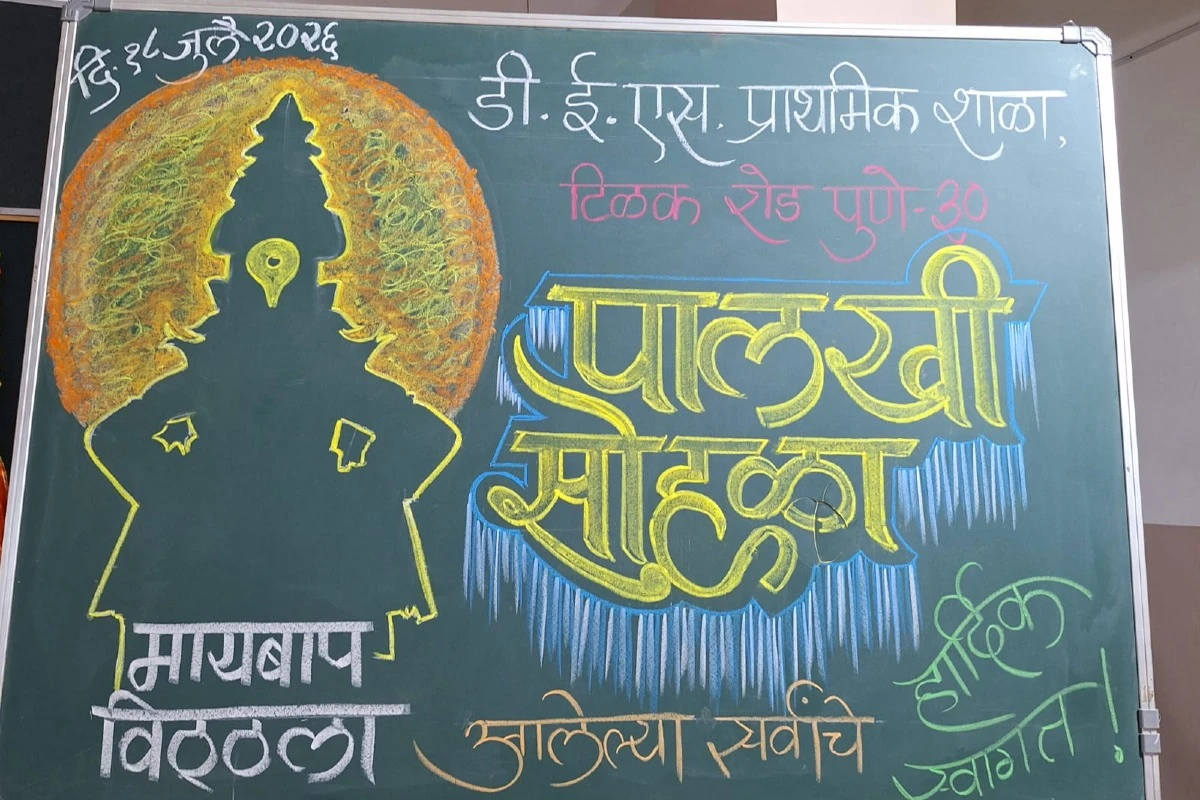 दि. १८ जुलै २०२६
डी. ई. एस. प्राथमिक शाळा,
टिळक रोड पुणे-३०
पालखी
सोहळा
मायबाप
विठ्ठला
आलेल्या सर्वांचे
हार्दिक
स्वागत!